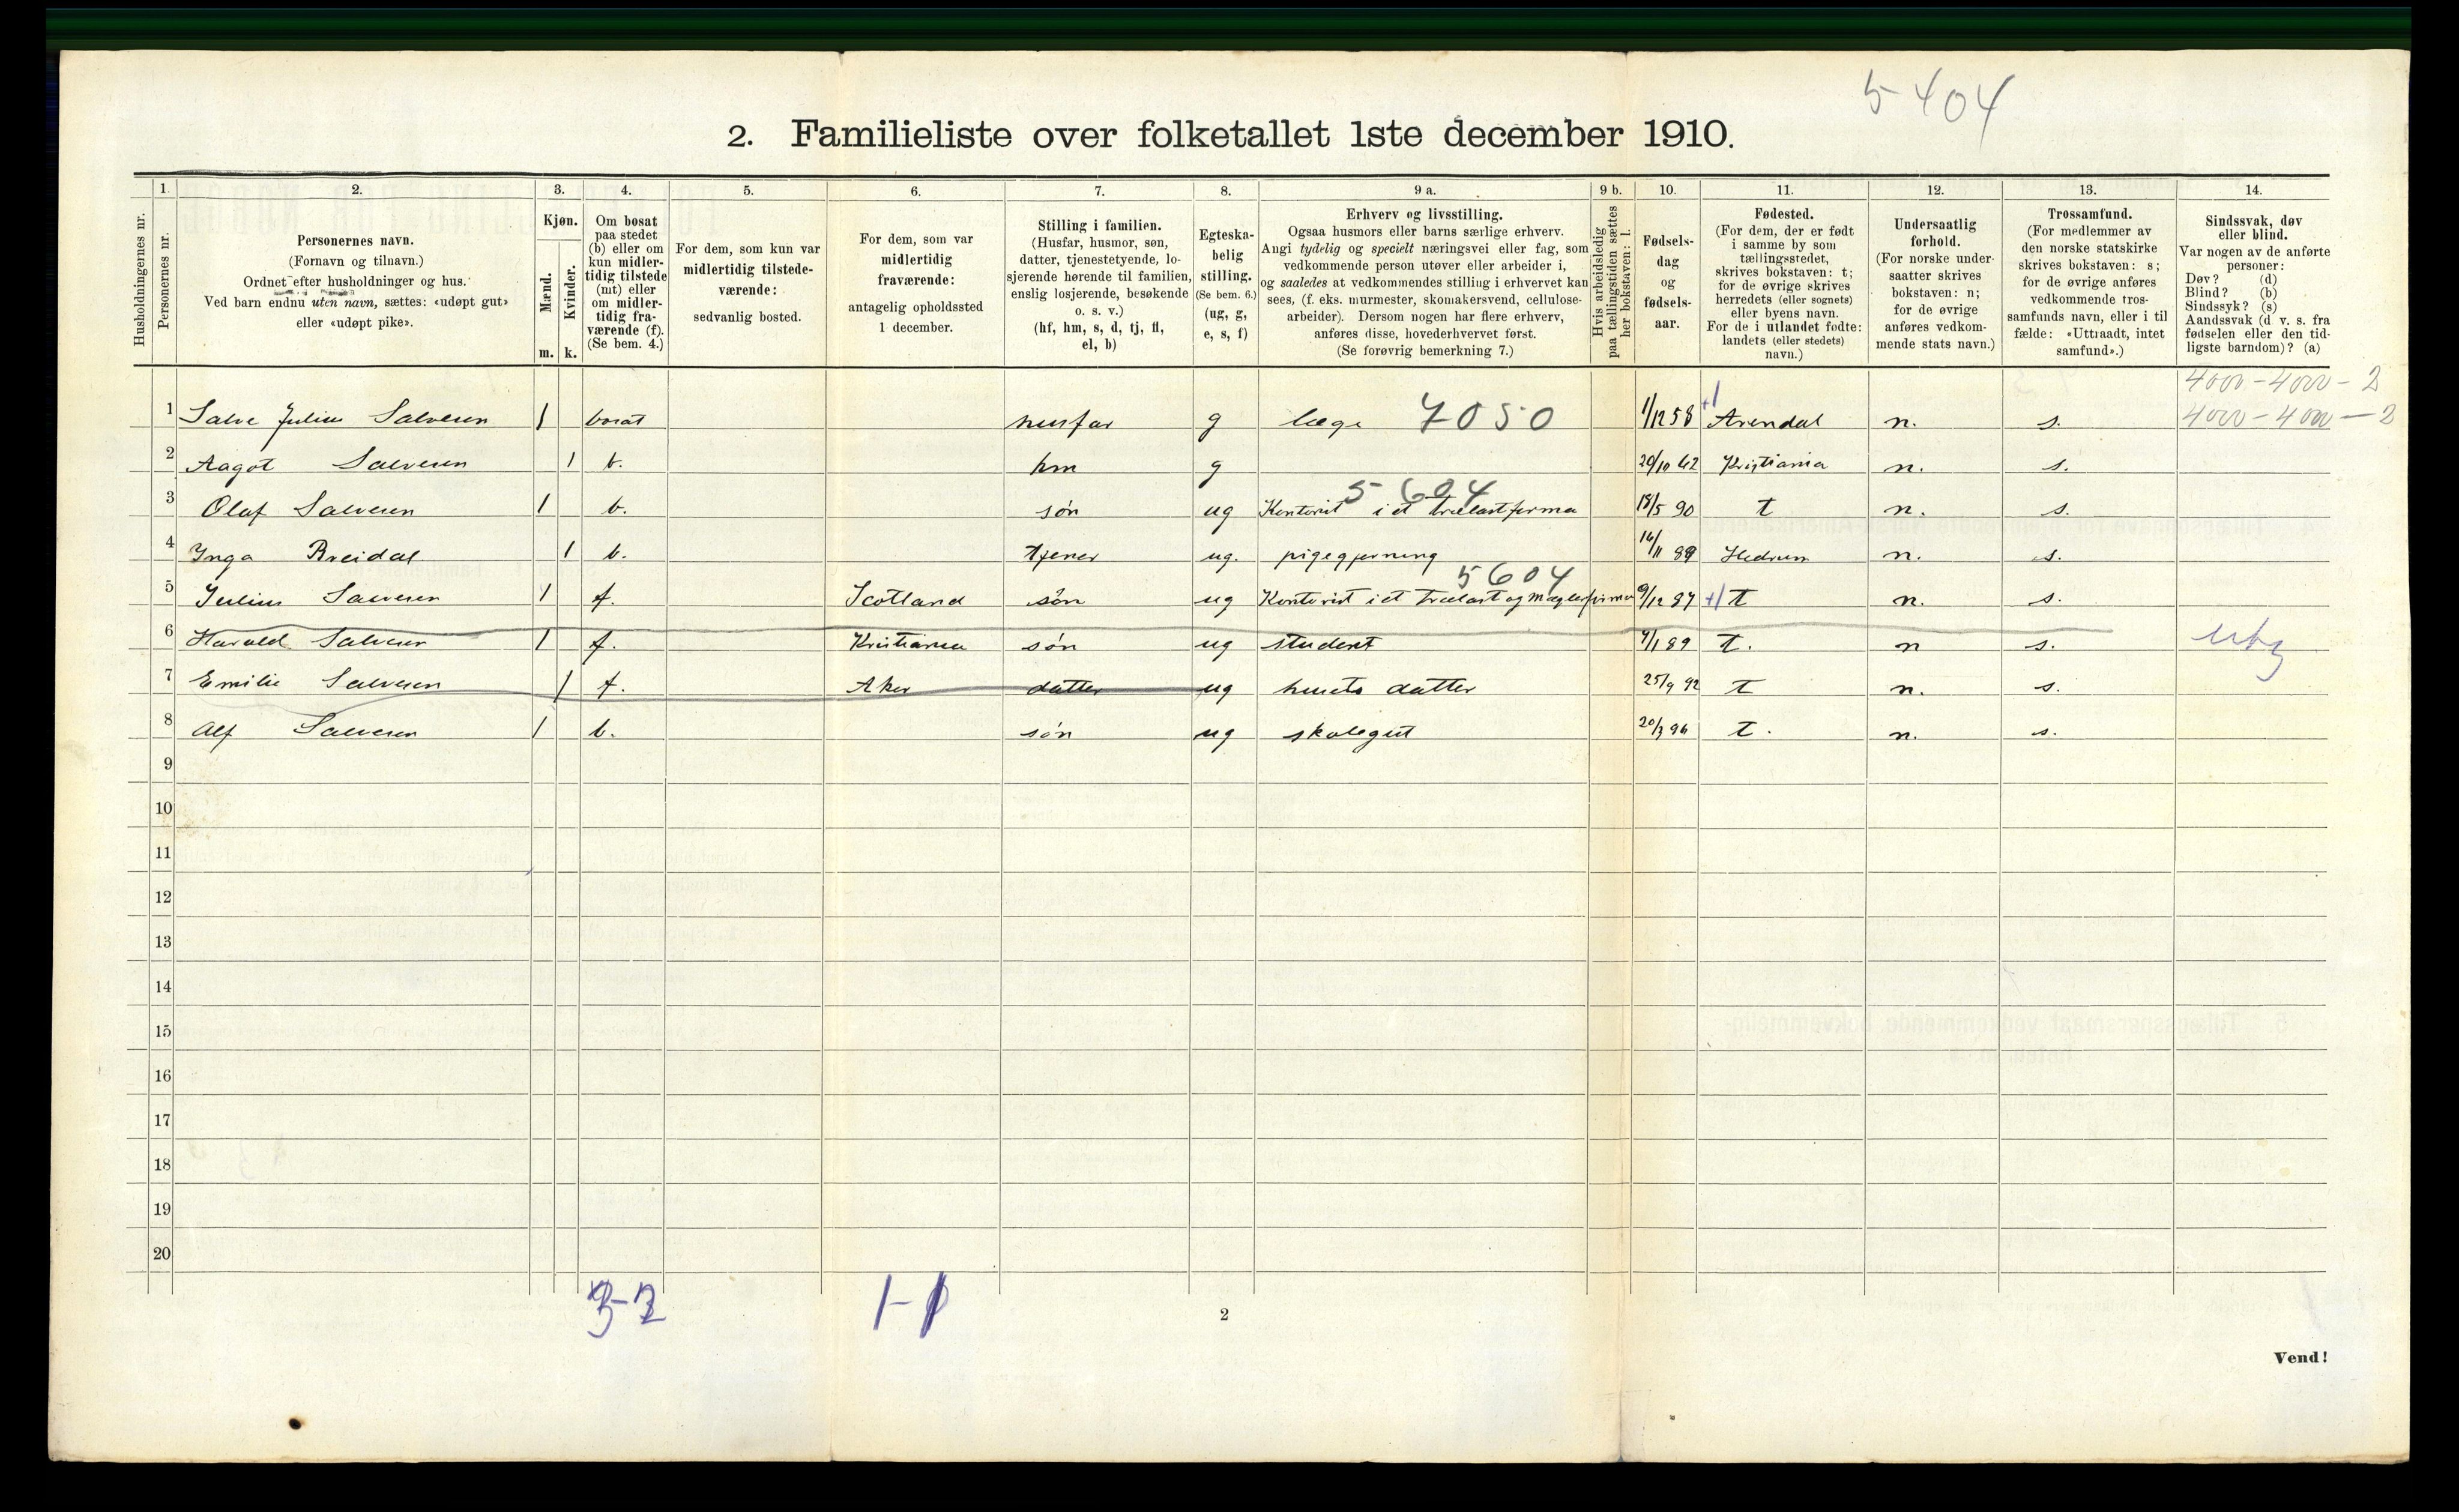 5404
2. Familieliste over folketallet 1ste december 1910.
1. 2. 3. 4. 5. 6. 7. 8. 9 a. 9 b. 10. 11. 12. 13. 14.
Husholdningernes nr.
Personernes nr.
Personernes navn.
(Fornavn og tilnavn.)
Ordnet efter husholdninger og hus.
Ved barn endnu uten navn, sættes: «udøpt gut»
eller «udøpt pike».
Kjøn.
Mænd.
Kvinder.
m. k.
Om bosat
paa stedet
(b) eller om
kun midler-
tidig tilstede
(mt) eller
om midler-
tidig fra-
værende (f).
(Se bem. 4.)
For dem, som kun var
midlertidig tilstede-
værende:
sedvanlig bosted.
For dem, som var
midlertidig
fraværende:
antagelig opholdssted
1 december.
Stilling i familien.
(Husfar, husmor, søn,
datter, tjenestetyende, lo-
sjerende hørende til familien,
enslig losjerende, besøkende
o. s. v.)
(hf, hm, s, d, tj, fl,
el, b)
Egteska-
belig
stilling.
(Se bem. 6.)
(ug, g,
e, s, f)
Erhverv og livsstilling.
Ogsaa husmors eller barns særlige erhverv.
Angi tydelig og specielt næringsvei eller fag, som
vedkommende person utøver eller arbeider i,
og saaledes at vedkommendes stilling i erhvervet kan
sees, (f. eks. murmester, skomakersvend, cellulose-
arbeider). Dersom nogen har flere erhverv,
anføres disse, hovederhvervet først.
(Se forøvrig bemerkning 7.)
Hvis arbeidsledig
paa tællingstiden sættes
her bokstaven: l.
Fødsels-
dag
og
fødsels-
aar.
Fødested.
(For dem, der er født
i samme by som
tællingsstedet,
skrives bokstaven: t;
for de øvrige skrives
herredets (eller sognets)
eller byens navn.
For de i utlandet fødte:
landets (eller stedets)
navn.)
Undersaatlig
forhold.
(For norske under-
saatter skrives
bokstaven: n;
for de øvrige
anføres vedkom-
mende stats navn.)
Trossamfund.
(For medlemmer av
den norske statskirke
skrives bokstaven: s;
for de øvrige anføres
vedkommende tros-
samfunds navn, eller i til
fælde: «Uttraadt, intet
samfund».)
Sindssvak, døv
eller blind.
Var nogen av de anførte
personer:
Døv? (d)
Blind? (b)
Sindssyk? (s)
Aandssvak (d v. s. fra
fødselen eller den tid-
ligste barndom)? (a)
4000 - 4000 - 2
1 Salve Julius Salvesen 1 bosat husfar g læge 7050 1/12 58 +1 Arendal n. s. 4000 - 4000 - 2
2 Aagot Salvesen 1 b. hm g 20/10 62 Kristiania n. s.
3 Olaf Salvesen 1 b. søn ug Kontorist i et trælastfirma 5604 18/5 90 t n. s.
4 Inga Breidal 1 b. tjener ug. pigegjerning 16/11 89 Hedrum n. s.
5 Julius Salvesen 1 f. Scotland søn ug Kontorist i et trælast og mæglerfirma 5604 9/12 87 +1 t n. s.
6 Harald Salvesen 1 f. Kristiania søn ug student 7/1 89 t. n s.
7 Emilie Salvesen 1 f. Aker datter ug husets datter 25/9 92 t n. s.
8 Alf Salvesen 1 b. søn ug skolegut 20/3 96 t. n. s.
9
10
11
12
13
14
15
16
17
18
19
20
3-2 1-1
2
Vend!